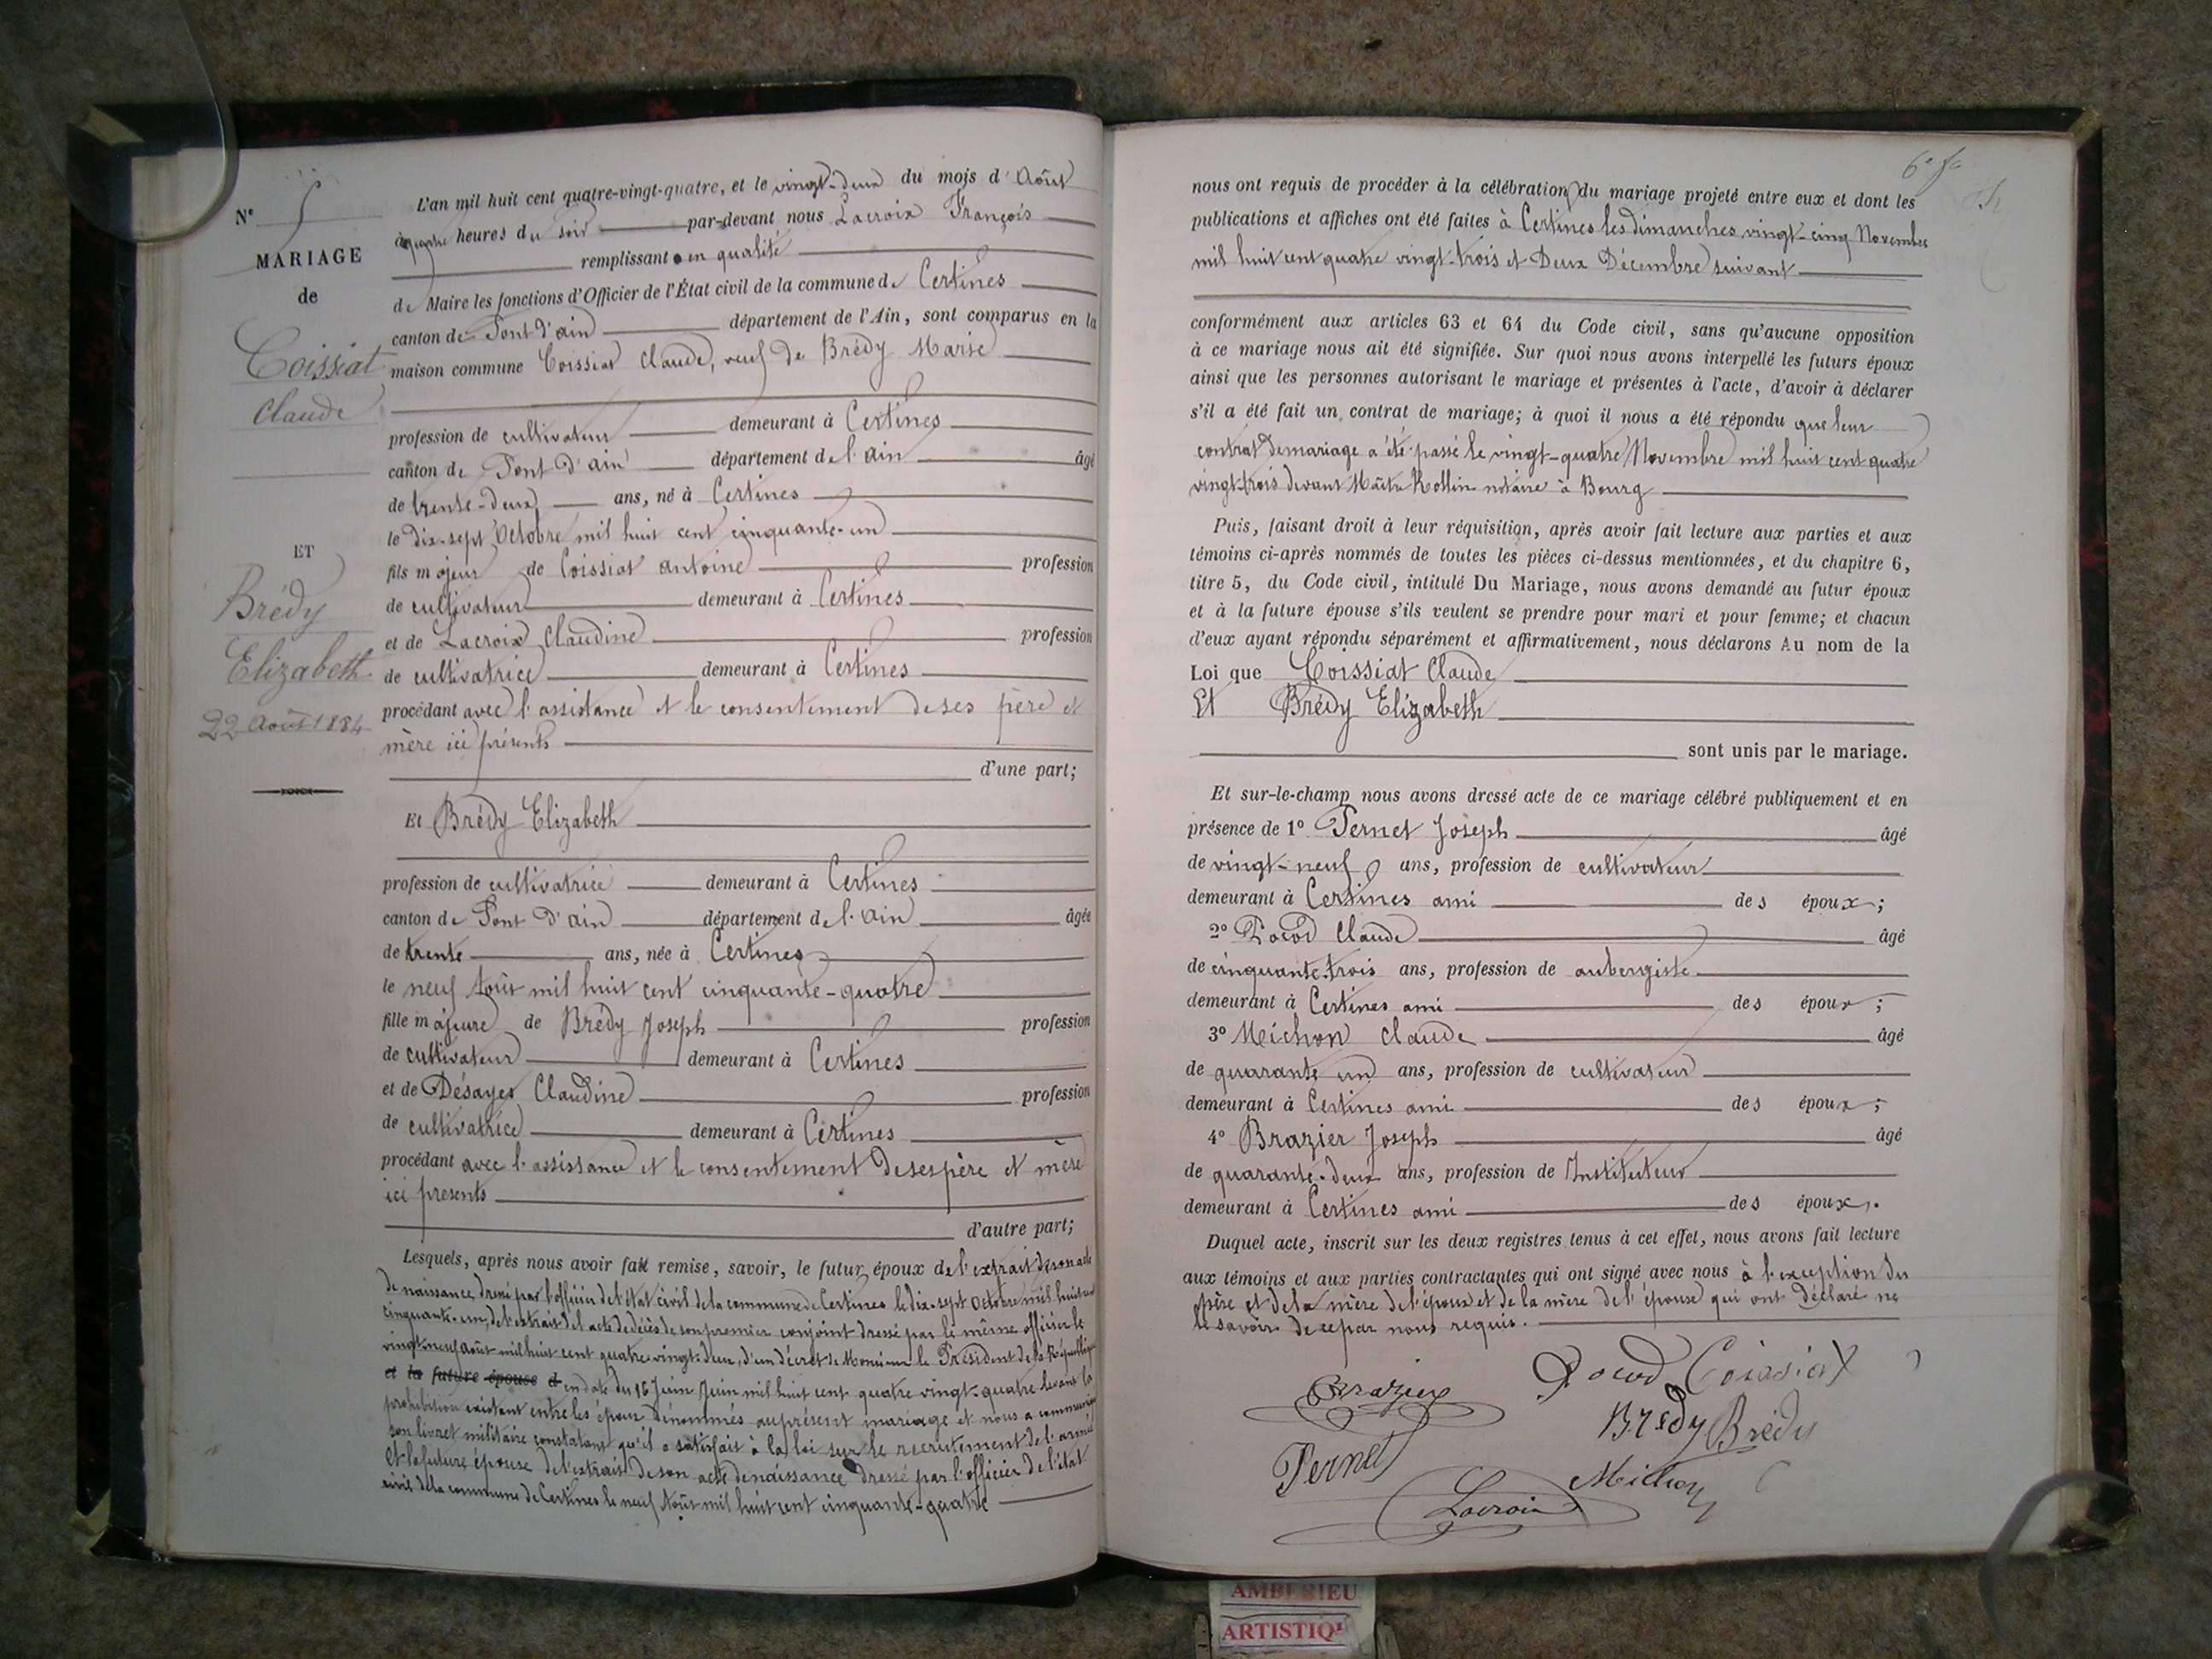 N° 5
MARIAGE
de
Coissiat
Claude
ET
Brédy
Elizabeth
22 Août 1884
L'an mil huit cent quatre-vingt-quatre, et le vingt-deux du mois d'Août
à quatre heures du soir par-devant nous Lacroix François
remplissant en qualité
de Maire les fonctions d'Officier de l'État civil de la commune de Certines
canton de Pont d'ain département de l'Ain, sont comparus en la
maison commune Coissiat Claude, veuf de Brédy Marie
profession de cultivateur demeurant à Certines
canton de Pont d'ain département de l'ain âgé
de trente-deux ans, né à Certines
le dix-sept Octobre mil huit cent cinquante-un
fils majeur de Coissiat antoine profession
de cultivateur demeurant à Certines
et de Lacroix Claudine profession
de cultivatrice demeurant à Certines
procédant avec l'assistance et le consentement de ses père et
mère ici présents
d'une part;
Et Brédy Elizabeth
profession de cultivatrice demeurant à Certines
canton de Pont d'ain département de l'ain âgée
de trente ans, née à Certines
le neuf Août mil huit cent cinquante-quatre
fille majeure de Brédy Joseph profession
de cultivateur demeurant à Certines
et de Désayes Claudine profession
de cultivatrice demeurant à Certines
procédant avec l'assistance et le consentement de ses père et mère
ici presents
d'autre part;
Lesquels, après nous avoir fait remise, savoir, le futur époux de l'extrait de son acte
de naissance dressé par l'officier de l'état civil de la commune de Certines le dix-sept Octobre mil huit cent
cinquante-un, de l'extrait de l'acte de décès de son premier conjoint dressé par le même officier le
vingt-neuf août mil huit cent quatre-vingt-deux, d'un décret de Monsieur le Président de la République
et la future épouse d en date du 16 Juin Juin mil huit cent quatre vingt-quatre levant la
prohibition existant entre les époux dénommés au présent mariage et nous a communiqué
son livret militaire constatant qu'il a satisfait à la loi sur le recrutement de l'armée
et la future épouse de l'extrait de son acte de naissance dressé par l'officier de l'état
civil de la commune de Certines le neuf Août mil huit cent cinquante-quatre
nous ont requis de procéder à la célébration du mariage projeté entre eux et dont les
publications et affiches ont été faites à Certines les dimanches vingt-cinq Novembre
mil huit cent quatre vingt-trois et Deux Décembre suivant
conformément aux articles 63 et 64 du Code civil, sans qu'aucune opposition
à ce mariage nous ait été signifiée. Sur quoi nous avons interpellé les futurs époux
ainsi que les personnes autorisant le mariage et présentes à l'acte, d'avoir à déclarer
s'il a été fait un contrat de mariage; à quoi il nous a été répondu que leur
contrat de mariage a été passé le vingt-quatre Novembre mil huit cent quatre
vingt-trois devant Maître Rollin notaire à Bourg
Puis, faisant droit à leur réquisition, après avoir fait lecture aux parties et aux
témoins ci-après nommés de toutes les pièces ci-dessus mentionnées, et du chapitre 6,
titre 5, du Code civil, intitulé Du Mariage, nous avons demandé au futur époux
et à la future épouse s'ils veulent se prendre pour mari et pour femme; et chacun
d'eux ayant répondu séparément et affirmativement, nous déclarons Au nom de la
Loi que Coissiat Claude
Et Brédy Elizabeth
sont unis par le mariage.
Et sur-le-champ nous avons dressé acte de ce mariage célébré publiquement et en
présence de 1° Pernet Joseph âgé
de vingt-neuf ans, profession de cultivateur
demeurant à Certines ami des époux;
2° Pocod Claude âgé
de cinquante-trois ans, profession de aubergiste
demeurant à Certines ami des époux;
3° Michon Claude âgé
de quarante un ans, profession de cultivateur
demeurant à Certines ami des époux;
4° Brazier Joseph âgé
de quarante-deux ans, profession de Instituteur
demeurant à Certines ami des époux.
Duquel acte, inscrit sur les deux registres tenus à cet effet, nous avons fait lecture
aux témoins et aux parties contractantes qui ont signé avec nous à l'exception du
père et de la mère de l'époux et de la mère de l'épouse qui ont déclaré ne
le savoir de ce par nous requis.
Brazier Pocod Coissiat
Brédy Brédy
Pernet Michon
Lacroix
AMBERIEU
ARTISTIQ